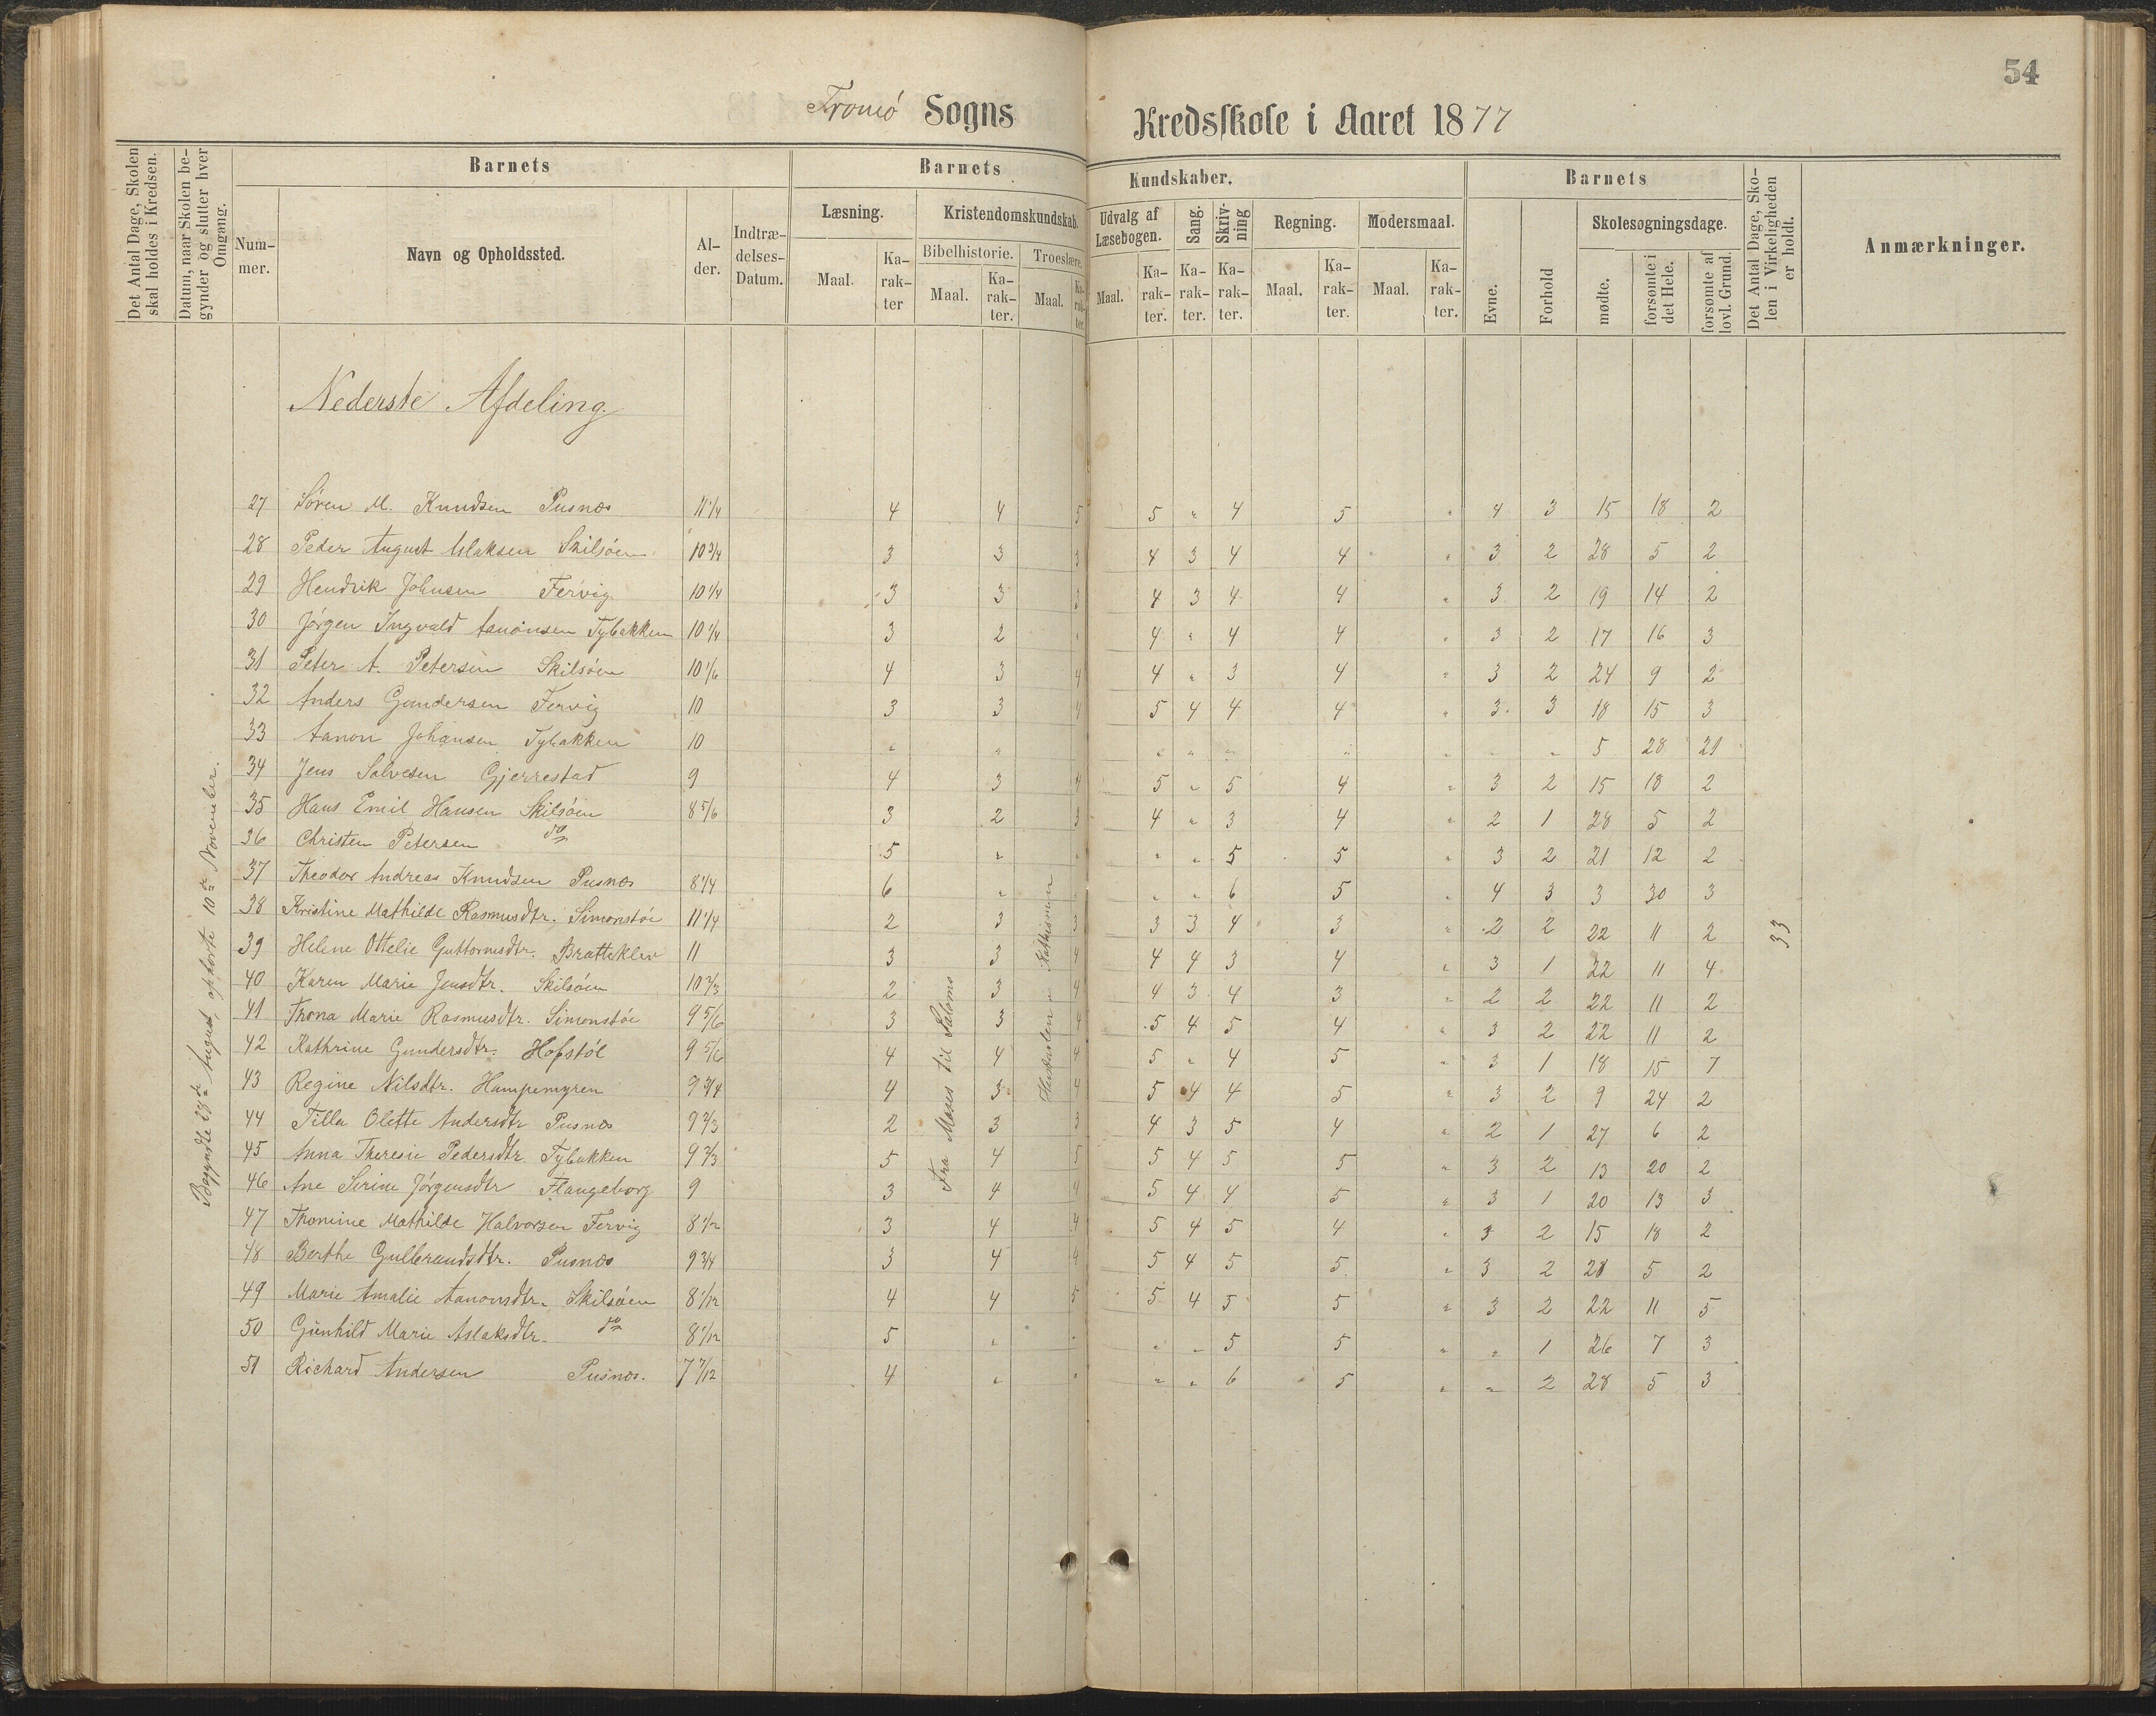 54
Tromø Sogns Kredsskole i Aaret 1877
Det Antal Dage, Skolen skal holdes i Kredsen.
Datum, naar Skolen begynder og slutter hver Omgang.
Barnets
Nummer.
Navn og Opholdssted.
Alder.
Indtrædelses-Datum.
Barnets Kundskaber.
Læsning.
Maal.
Karakter
Kristendomskundskab.
Bibelhistorie.
Maal.
Karakter.
Troeslære.
Maal.
Karakter.
Udvalg af Læsebogen.
Maal.
Karakter.
Sang.
Karakter.
Skrivning
Karakter.
Regning.
Maal.
Karakter.
Modersmaal.
Maal.
Karakter.
Barnets
Evne.
Forhold
Skolesøgningsdage.
mødte.
forsømte i det Hele.
forsømte af lovl. Grund.
Det Antal Dage, Skolen i Virkeligheden er holdt.
Anmærkninger.
Nederste Afdeling.
27 Søren M. Knudsen Pusnæs 11 1/4 4 4 5 5 " 4 5 " 4 3 15 18 2
28 Peder August Aslaksen Skilsøen 10 3/4 3 3 3 4 3 4 4 " 3 2 28 5 2
29 Hendrik Johnsen Fervig 10 1/4 3 3 3 4 3 4 4 " 3 2 19 14 2
30 Jørgen Ingvald Aanonsen Tybakken 10 1/4 3 2 " 4 " 4 4 " 3 2 17 16 3
31 Peter A. Petersen Skilsøen 10 1/6 4 3 4 4 " 3 4 " 3 2 24 9 2
32 Anders Gundersen Fervig 10 3 3 4 5 4 4 4 " 3 3 18 15 3
33 Aanon Johansen Tybakken 10 " " " " " " " " " 5 28 21
34 Jens Salvesen Gjerrestad 9 4 3 4 5 " 5 4 " 3 2 15 18 2
35 Hans Emil Hansen Skilsøen 8 5/6 3 2 3 4 " 3 4 " 2 1 28 5 2
36 Christen Petersen do 5 " " " " 5 5 " 3 2 21 12 2
37 Theodor Andreas Knudsen Pusnæs 8 1/4 6 " " " " 6 5 " 4 3 3 30 3
38 Kristine Mathilde Rasmusdtr. Simonstøe 11 1/4 2 3 3 3 3 4 3 " 2 2 22 11 2
39 Helene Ottelie Guttormsdtr. Bratteklev 11 3 3 4 4 4 3 4 " 3 1 22 11 4
40 Karen Marie Jensdtr. Skilsøen 10 2/3 2 3 4 4 3 4 3 " 2 2 22 11 2
41 Thona Marie Rasmusdtr. Simonstøe 9 5/6 3 3 4 5 4 5 4 " 3 2 22 11 2
42 Kathrine Gundersdtr. Hofstøl 9 5/6 4 4 4 5 " 4 5 " 3 1 18 15 7
43 Regine Nilsdtr. Hampemyren 9 3/4 4 3 4 5 4 4 5 " 3 2 9 24 2
44 Tilla Olette Andersdtr Pusnæs 9 2/3 2 3 3 4 3 5 4 " 2 1 27 6 2
45 Anna Theresie Pedersdtr. Tybakken 9 2/3 5 4 5 5 4 5 5 " 3 2 13 20 2
46 Ane Serine Jørgensdtr Flangeborg 9 3 4 4 5 4 4 5 " 3 1 20 13 3
47 Thomine Mathilde Halvorsen Fervig 8 1/2 3 4 4 5 4 5 4 " 3 2 15 18 2
48 Berthe Gulbrandsdtr. Pusnæs 9 3/4 3 4 4 5 4 5 5 " 3 2 28 5 2
49 Marie Amalie Aanonsdtr. Skilsøen 8 1/12 4 4 5 5 4 5 5 " 3 2 22 11 5
50 Gunhild Marie Aslaksdtr. do 8 1/12 5 " " " " 5 5 " " 1 26 7 3
51 Richard Andersen Pusnæs. 7 7/12 4 " " " " 6 5 " " 2 28 5 3
Begyndte 27de August, ophørte 10de November.
Fra Moses til Salomo
Hustavlen i Kathismen
33